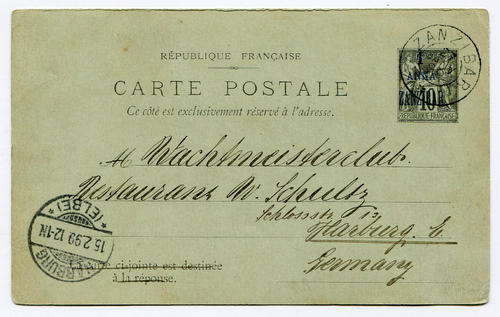 RÉPUBLIQUE FRANÇAISE
CARTE POSTALE
Ce côté est exclusivement réservé à l'adresse.
ZANZIBAR
1
ANNA
ZANZIBAR
10
REPUBLIQUE FRANÇAISE
Wachtmeisterclub.
Restaurant W. Schultz
Schlossstr 13
Harburg. E.
Germany
HARBURG
*(ELBE)*
15.2.99.12-1N
carte ci-jointe est destinée
à la réponse.